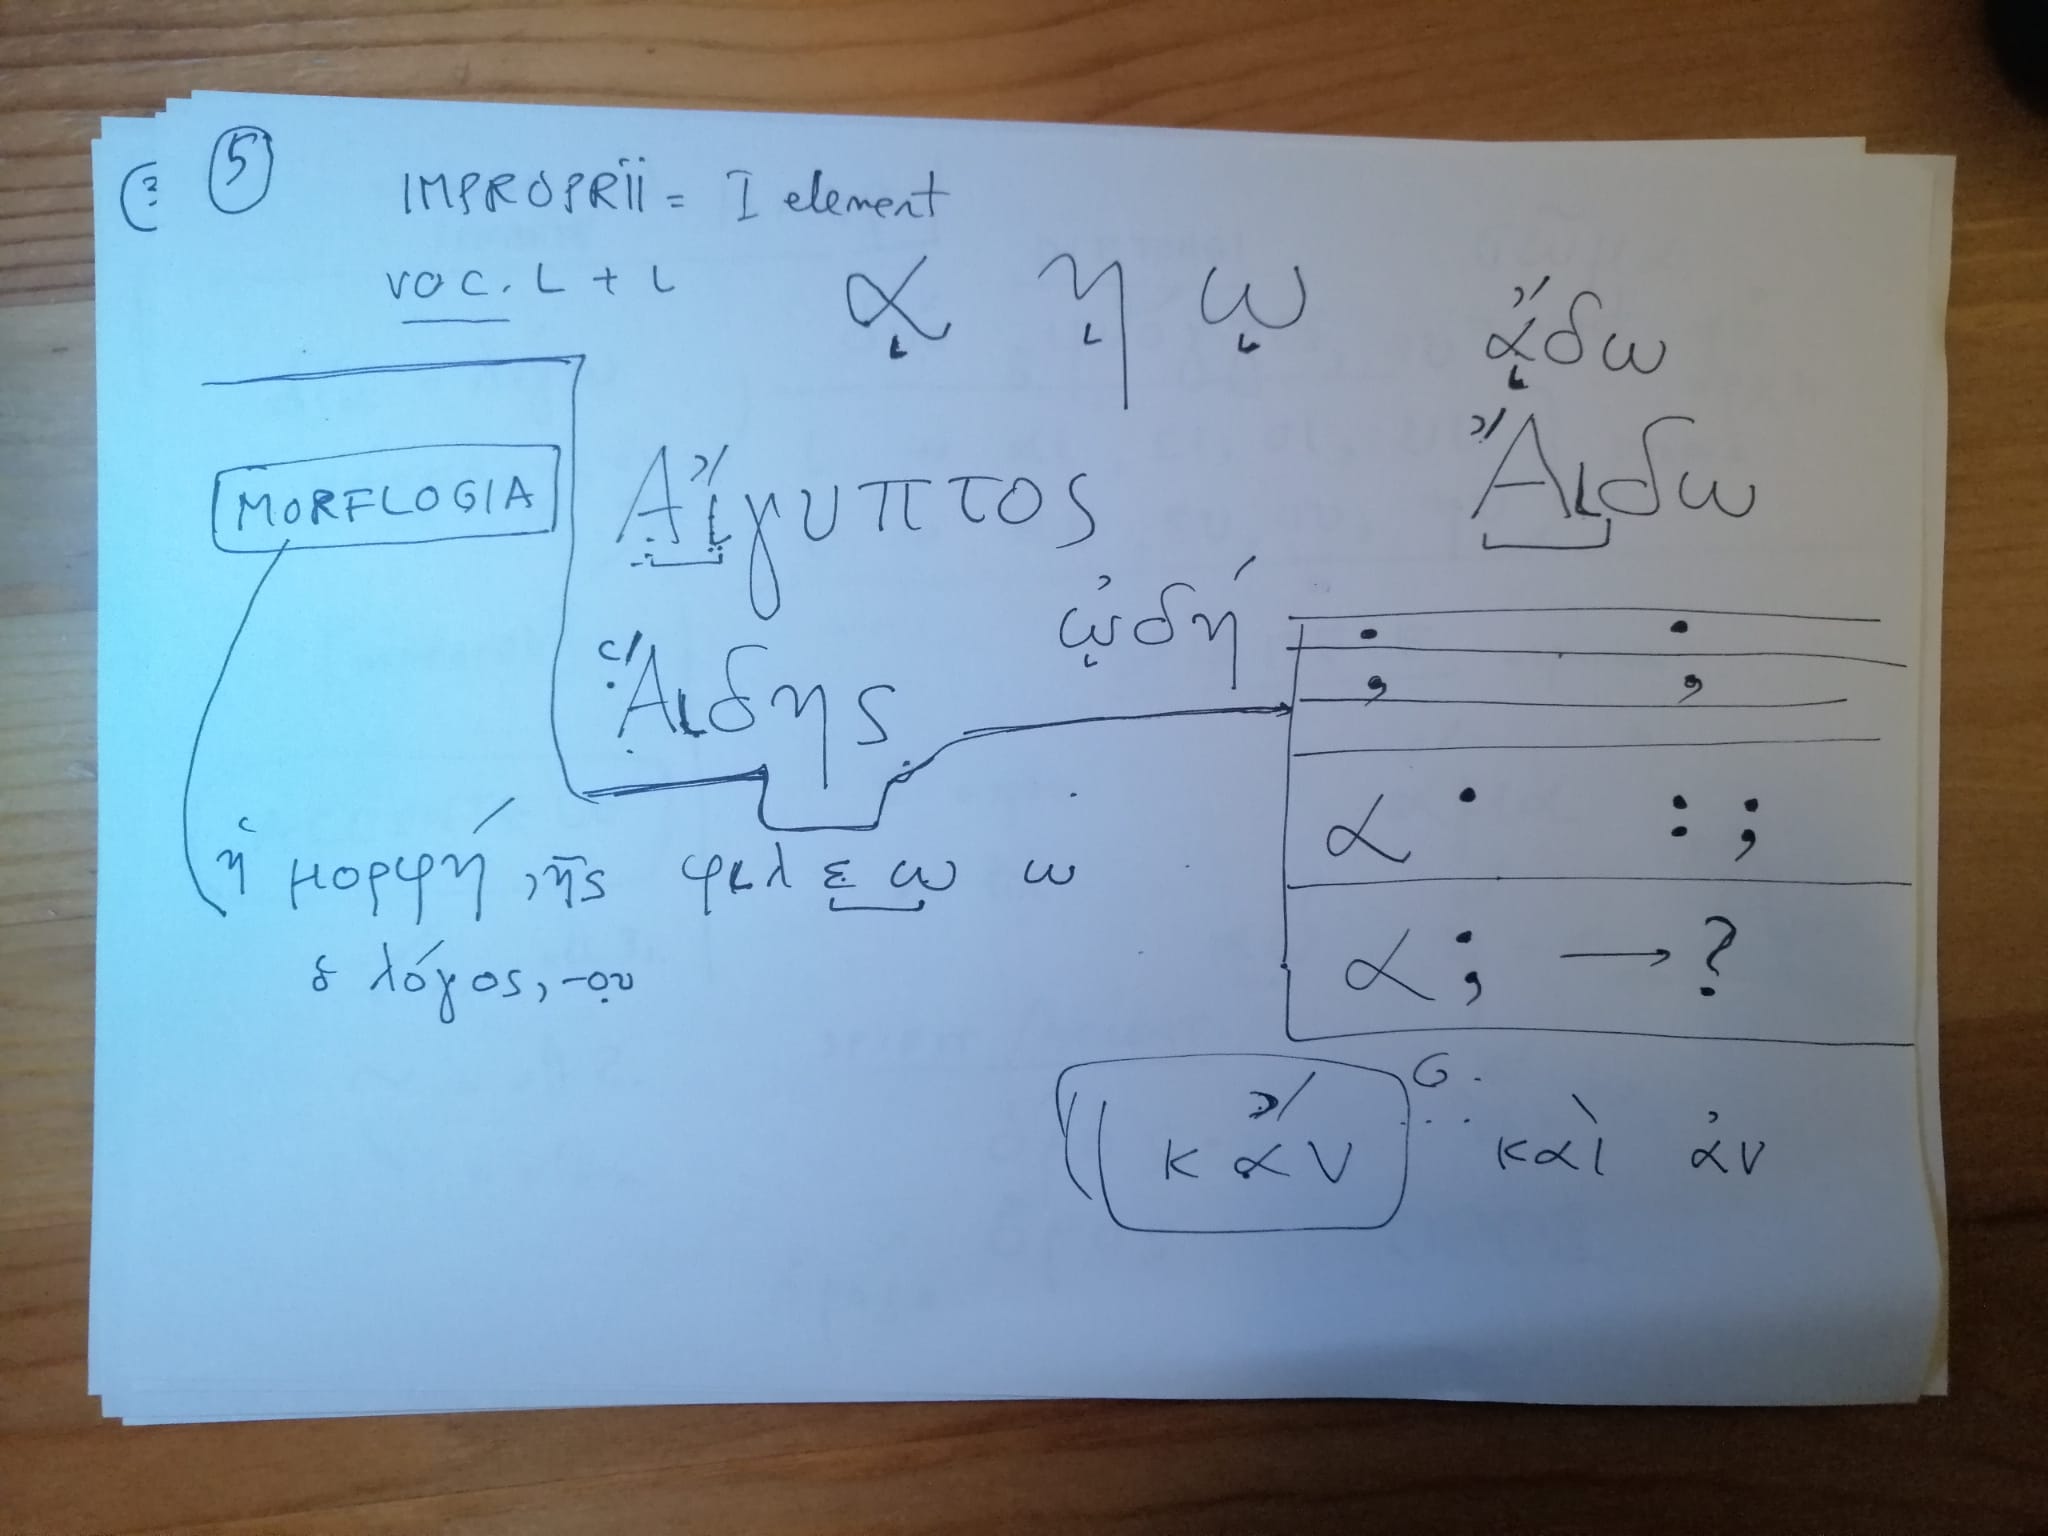 (3
5
IMPROPRII = I element
VOC. L + ι
ᾳ ῃ ῳ
ᾄδω
Ἄιδω
MORFLOGIA
Αἴγυπτος
ᾠδή
Ἅιδης
. .
, ,
α · : ;
α ; → ?
ἡ μορφή, ῆς φιλεω ω
ὁ λόγος, -ου
κἄν G. καὶ ἀν